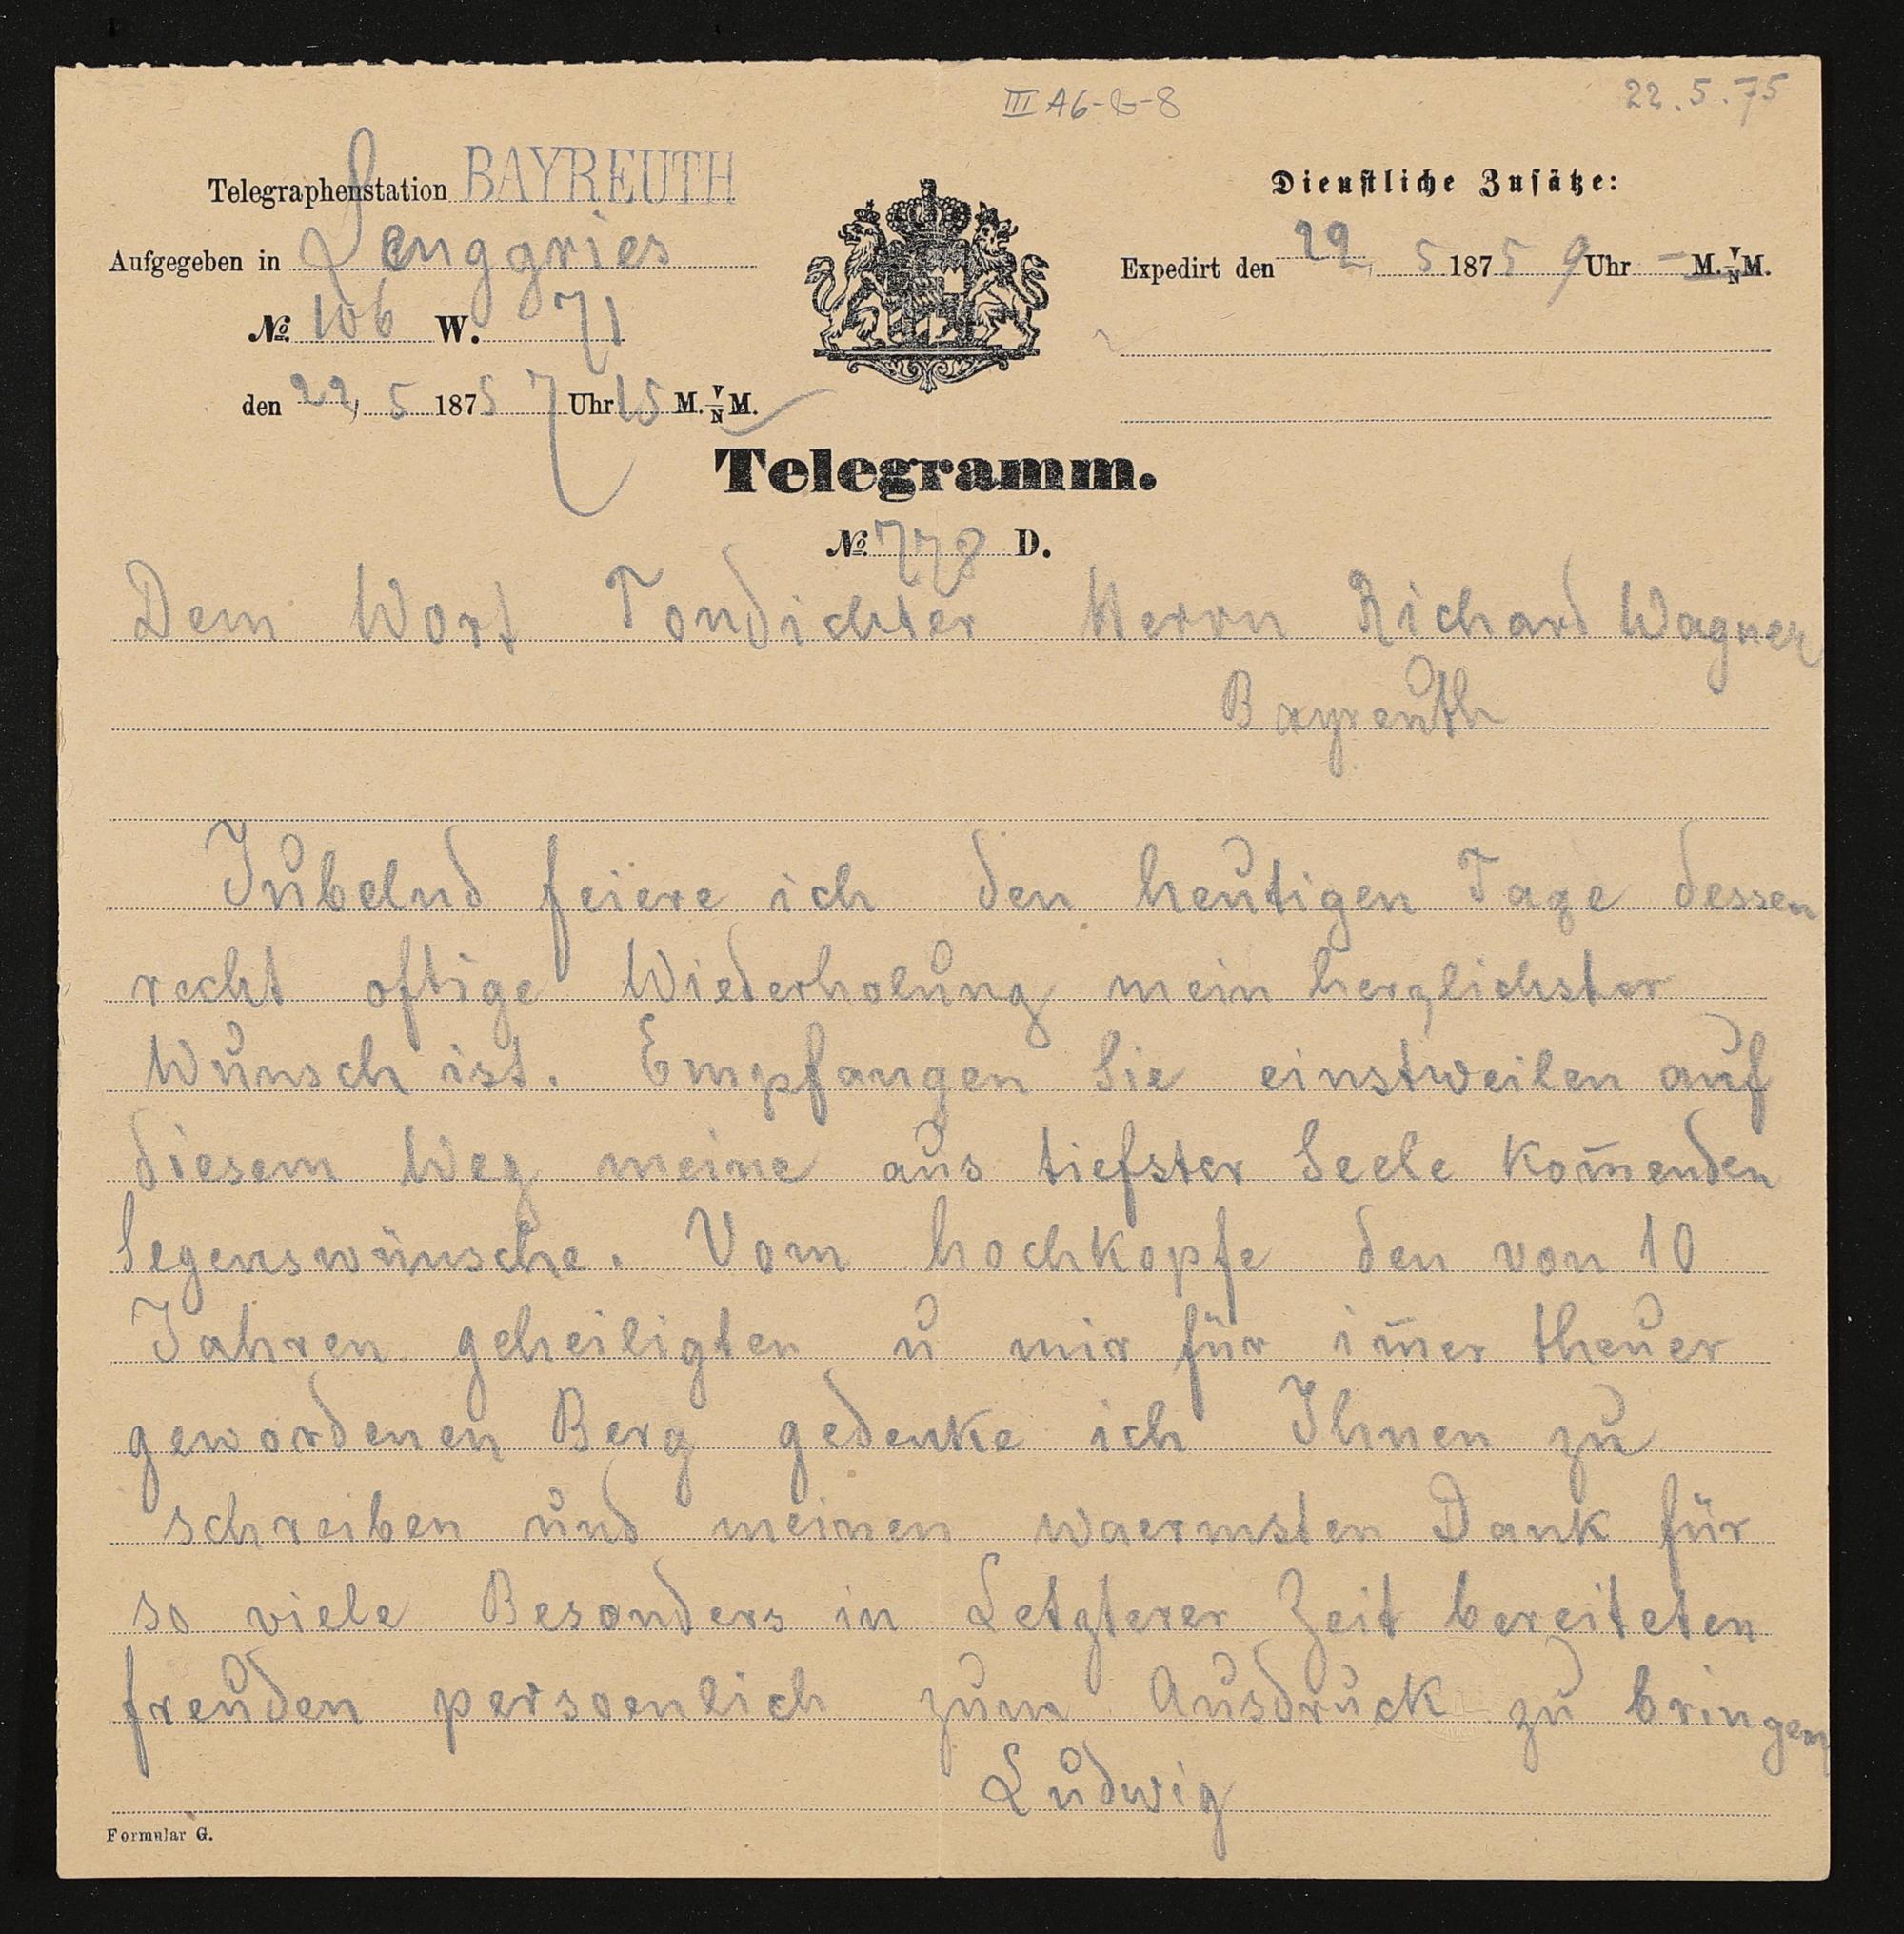 III A6-2-8
22.5.75
Telegraphenstation BAYREUTH
Dienstliche Zusätze:
Aufgegeben in Lenggries
Expedirt den 22, 5 1875 9 Uhr – M. V/N M.
No. 106 W. 71
den 22, 5 1875 7 Uhr 15 M. V/N M.
Telegramm.
No. 778 D.
Dem Wort Tondichter Herrn Richard Wagner
Bayreuth
Jubelnd feiere ich den heutigen Tage dessen
recht oftige Wiederholung mein herzlichster
Wunsch ist. Empfangen Sie einstweilen auf
diesem Weg meine aus tiefster Seele kom̄enden
Segenswünsche. Vom hochkopfe den von 10
Jahren geheiligten u mir für im̄er theuer
gewordenen Berg gedenke ich Ihnen zu
schreiben und meinen waermsten Dank für
so viele Besonders in Letzterer Zeit bereiteten
freuden persoenlich zum Ausdruck zu bringen
Ludwig
Formular G.